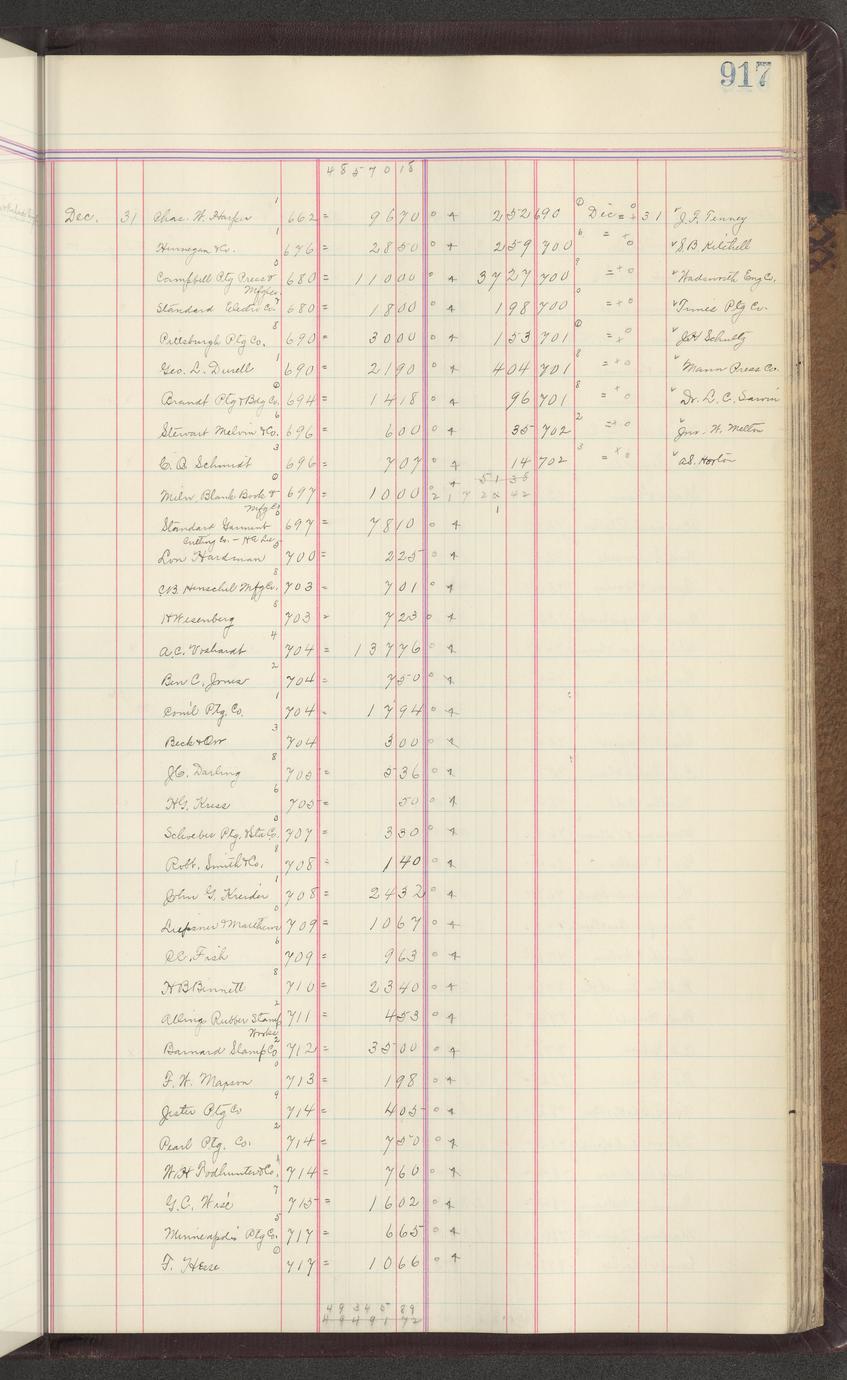 917
485701 15
Dec. 31 Chas. W. Harper 1 662 = 9670 0 4 252 690 Dec = 31 J.F. Tenney
Hunnegan & Co. 676 = 2850 0 4 259 700 6 = S.B. Kitchell
Campbell Ptg Press & Mfg Co. 0 680 = 11000 0 4 3727 700 = Wadsworth Eng Co.
Standard Electro Co. 7 680 = 1800 0 4 198 700 0 = Times Ptg Co.
Pittsburgh Ptg Co. 8 690 = 3000 0 4 153 701 = J.H. Schultz
Geo. L. Durell 1 690 = 2190 0 4 404 701 8 = Mann Press Co.
Brandt Ptg & Bdg Co. 0 694 = 1418 0 4 96 701 8 = Dr. L. C.
Stewart Melvin & Co. 6 696 = 600 0 4 35 702 2 = Jno. W. Melton
C. B. Schmidt 3 696 = 707 0 4 14 702 3 = A.S. Horton
5138
Milw. Blank Book & Mfg Co. 0 697 = 1000 0 4 217 2 42
Standard Garment 697 = 7810 0 4
Cutting Co.
Lon Hardman 5 700 = 225 0 4
C.B. Henschel Mfg Co. 8 703 = 701 0 4
H Wesenberg 8 703 = 723 0 4
A.C. Voshardt 4 704 = 13776 0 4
Ben C. Jones 2 704 = 750 0 4
Com'l Ptg. Co. 1 704 = 1794 0 4
Beck & Orr 3 704 300 0 4
J.C. Darling 8 705 = 536 0 4
H.G. Kress 6 705 = 50 0 4
Schober Ptg. & Sta Co. 0 707 = 330 0 4
Robt. Smith & Co. 8 708 = 140 0 4
John G. Kreider 1 708 = 2432 0 4
& Matthews 0 709 = 1067 0 4
C.C. Fish 6 709 = 963 0 4
H B Bennett 8 710 = 2340 0 4
Alling Rubber Stamp Works 2 711 = 453 0 4
Barnard Stamp Co 2 712 = 3500 0 4
F. W. Mapson 0 713 = 198 0 4
Jester Ptg Co 9 714 = 405 0 4
Pearl Ptg. Co. 2 714 = 750 0 4
W.H. Podhunter & Co. 714 = 760 0 4
G.C. Wise 7 715 = 1602 0 4
Minneapolis Ptg Co. 5 717 = 665 0 4
F. Heese 0 717 = 1066 0 4
49345 89
49491 72